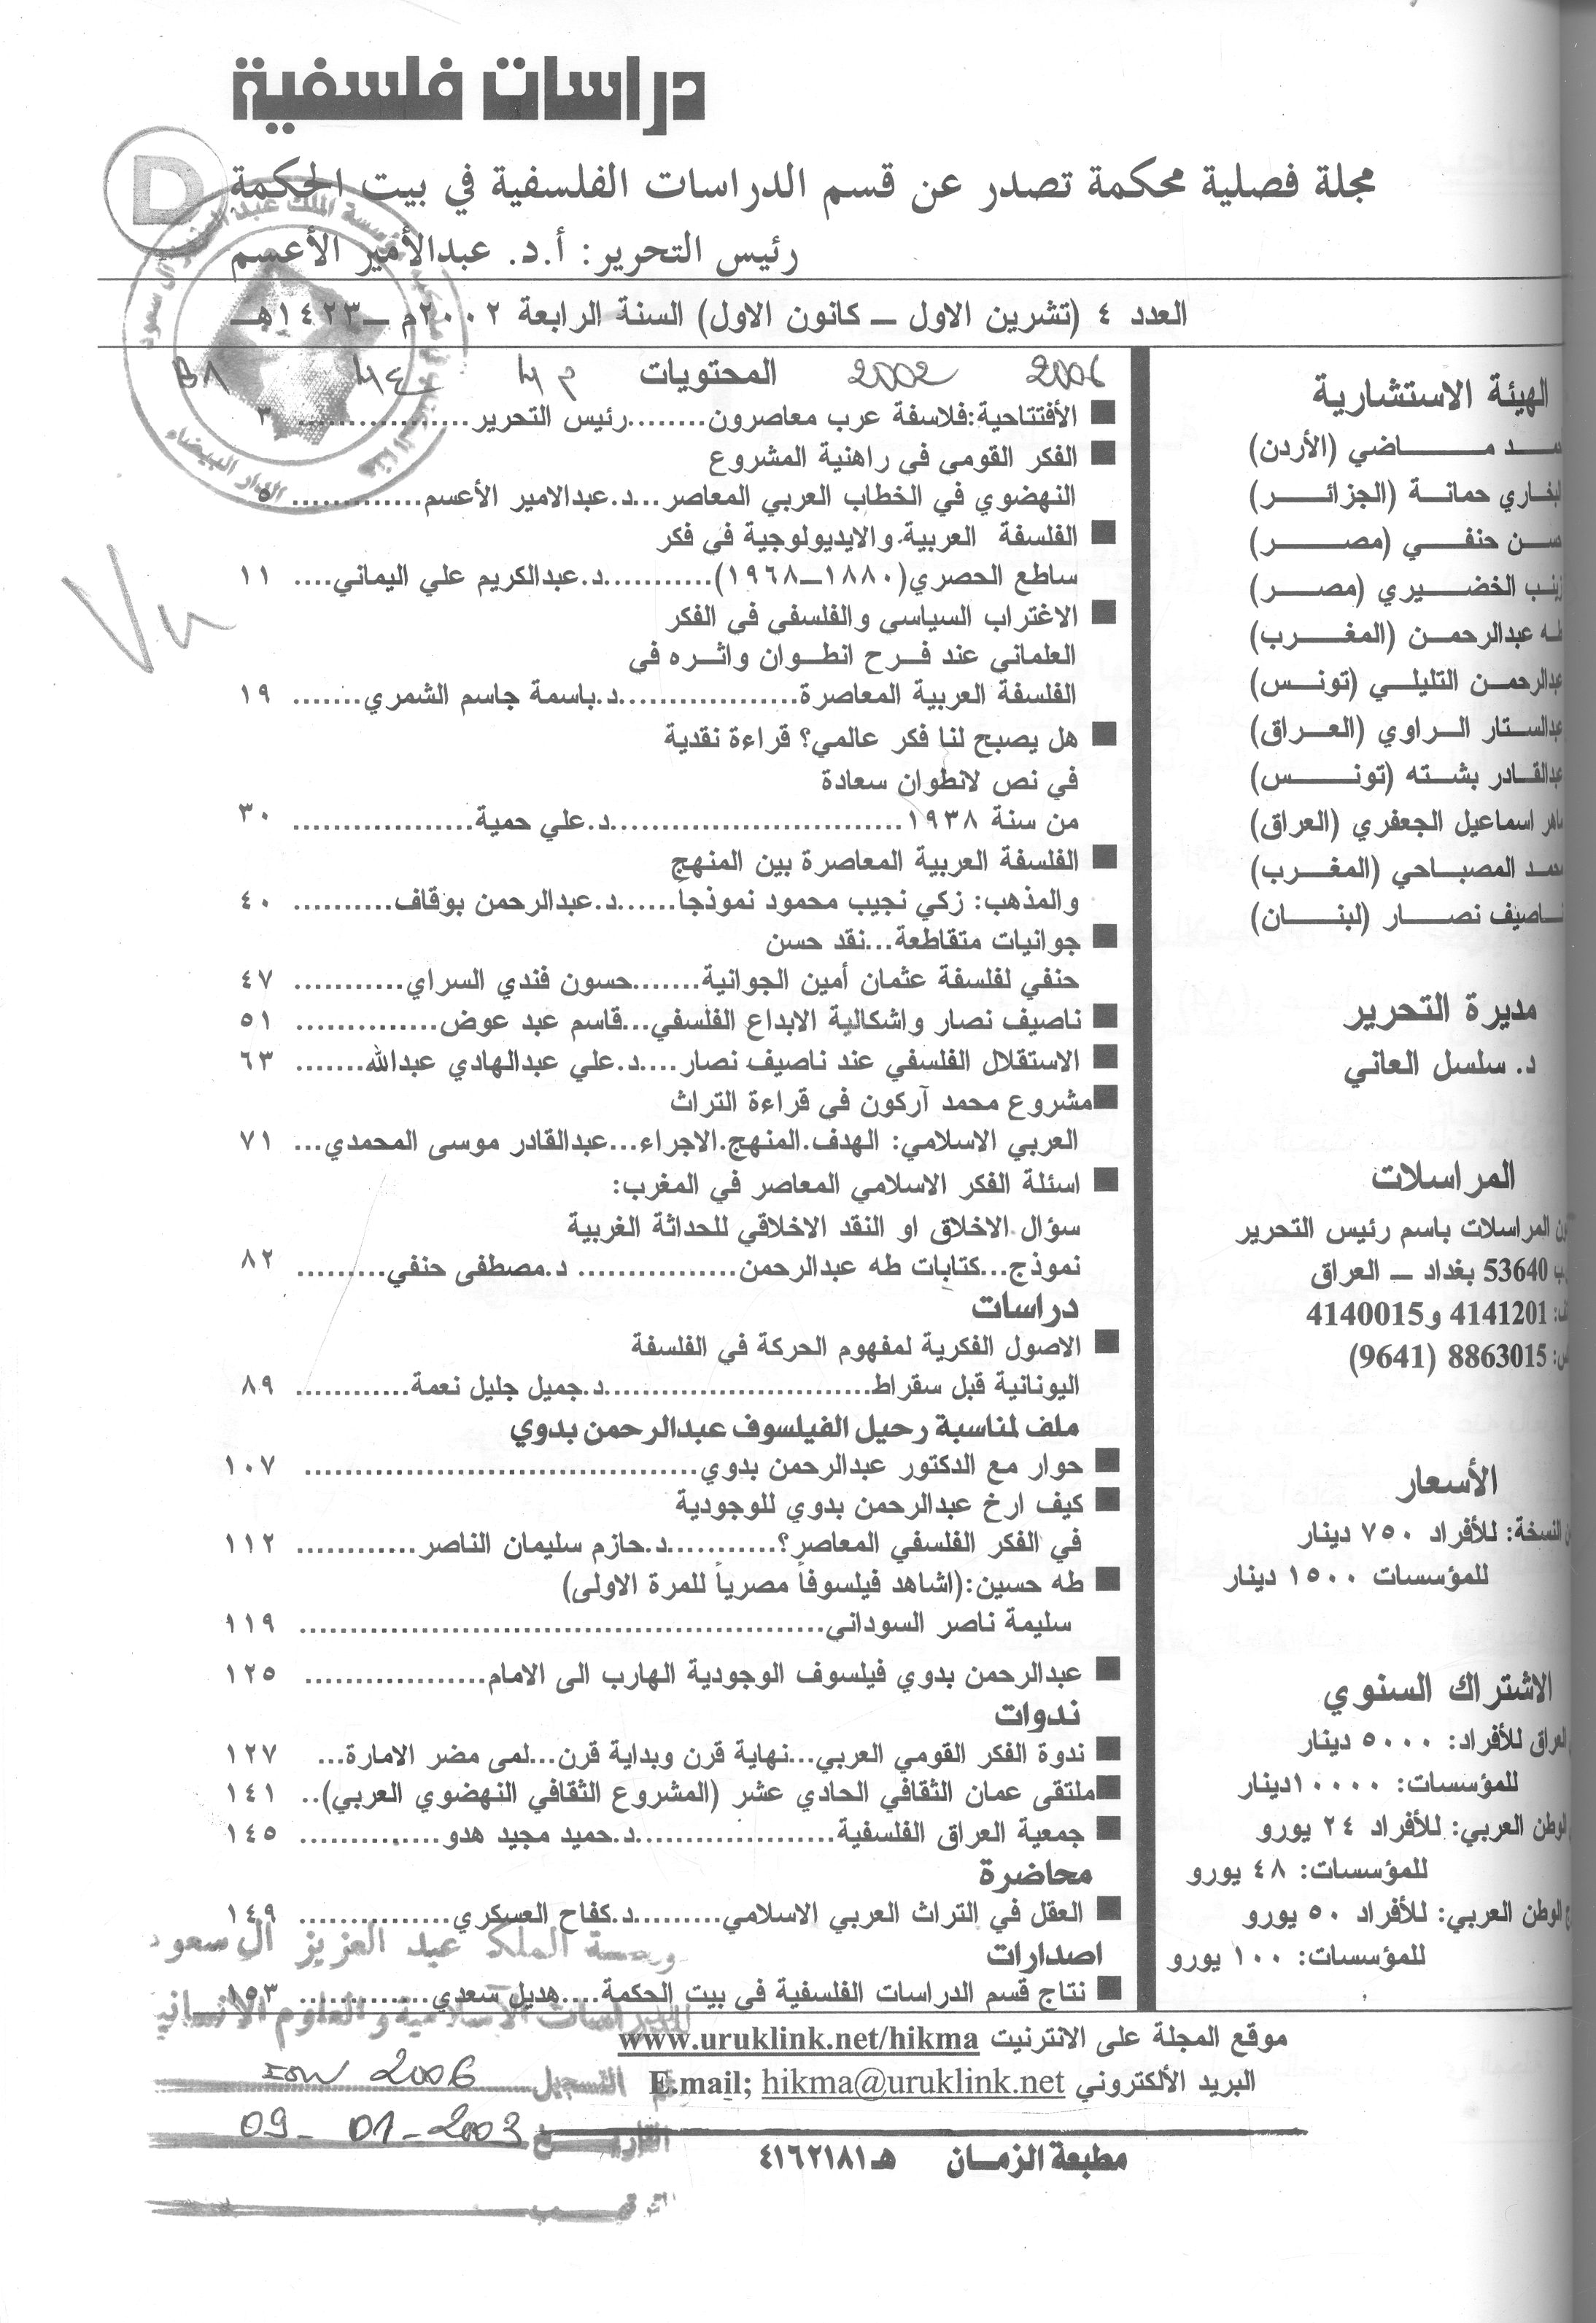 دراسات فلسفية
مجلة فصلية محكمة تصدر عن قسم الدراسات الفلسفية في بيت الحكمة
رئيس التحرير: أ.د. عبدالأمير الأعسم
العدد ٤ (تشرين الاول ــ كانون الاول) السنة الرابعة ٢٠٠٢م ــ ١٤٢٣هـ
الهيئة الاستشارية
ماضي (الأردن)
البخاري حمانة (الجزائر)
حنفي (مصر)
زينب الخضيري (مصر)
طه عبدالرحمن (المغرب)
عبدالرحمن التليلي (تونس)
عبدالستار الراوي (العراق)
عبدالقادر بشته (تونس)
ماهر اسماعيل الجعفري (العراق)
المصباحي (المغرب)
ناصيف نصار (لبنان)
مديرة التحرير
د. سلسل العاني
المراسلات
المراسلات باسم رئيس التحرير
53640 بغداد ــ العراق
4141201 و4140015
8863015 (9641)
الأسعار
النسخة: للأفراد ٧٥٠ دينار
للمؤسسات ١٥٠٠ دينار
الاشتراك السنوي
العراق للأفراد: ٥٠٠٠ دينار
للمؤسسات: ١٠٠٠٠دينار
الوطن العربي: للأفراد ٢٤ يورو
للمؤسسات: ٤٨ يورو
الوطن العربي: للأفراد ٥٠ يورو
للمؤسسات: ١٠٠ يورو
المحتويات 2002 2006
الأفتتاحية:فلاسفة عرب معاصرون........رئيس التحرير................. ٣
الفكر القومي في راهنية المشروع
النهضوي في الخطاب العربي المعاصر...د.عبدالامير الأعسم............. ٥
الفلسفة العربية والايديولوجية في فكر
ساطع الحصري(١٨٨٠ــ١٩٦٨)...........د.عبدالكريم علي اليماني.... ١١
الاغتراب السياسي والفلسفي في الفكر
العلماني عند فرح انطوان واثره في
الفلسفة العربية المعاصرة..................د.باسمة جاسم الشمري....... ١٩
هل يصبح لنا فكر عالمي؟ قراءة نقدية
في نص لانطوان سعادة
من سنة ١٩٣٨..............................د.علي حمية................... ٣٠
الفلسفة العربية المعاصرة بين المنهج
والمذهب: زكي نجيب محمود نموذجا......د.عبدالرحمن بوقاف.......... ٤٠
جوانيات متقاطعة...نقد حسن
حنفي لفلسفة عثمان أمين الجوانية.......حسون فندي السراي........... ٤٧
ناصيف نصار واشكالية الابداع الفلسفي...قاسم عبد عوض.............. ٥١
الاستقلال الفلسفي عند ناصيف نصار....د.علي عبدالهادي عبدالله....... ٦٣
مشروع محمد آركون في قراءة التراث
العربي الاسلامي: الهدف.المنهج.الاجراء...عبدالقادر موسى المحمدي... ٧١
اسئلة الفكر الاسلامي المعاصر في المغرب:
سؤال الاخلاق او النقد الاخلاقي للحداثة الغربية
نموذج...كتابات طه عبدالرحمن................ د.مصطفى حنفي......... ٨٢
دراسات
الاصول الفكرية لمفهوم الحركة في الفلسفة
اليونانية قبل سقراط...........................د.جميل جليل نعمة............ ٨٩
ملف لمناسبة رحيل الفيلسوف عبدالرحمن بدوي
حوار مع الدكتور عبدالرحمن بدوي........................................ ١٠٧
كيف ارخ عبدالرحمن بدوي للوجودية
في الفكر الفلسفي المعاصر؟...........د.حازم سليمان الناصر............ ١١٢
طه حسين:(اشاهد فيلسوفاً مصرياً للمرة الاولى)
سليمة ناصر السوداني...................................................... ١١٩
عبدالرحمن بدوي فيلسوف الوجودية الهارب الى الامام.................. ١٢٥
ندوات
ندوة الفكر القومي العربي...نهاية قرن وبداية قرن...لمى مضر الامارة... ١٢٧
ملتقى عمان الثقافي الحادي عشر (المشروع الثقافي النهضوي العربي).. ١٤١
جمعية العراق الفلسفية......................د.حميد مجيد هدو.............. ١٤٥
محاضرة
العقل في التراث العربي الاسلامي.........د.كفاح العسكري............... ١٤٩
اصدارات
نتاج قسم الدراسات الفلسفية في بيت الحكمة....هديل سعدي............. ١٥٣
الملك عبد العزيز آل سعود
للدراسات الاسلامية والعلوم الانسانية
موقع المجلة على الانترنيت www.uruklink.net/hikma
البريد الألكتروني E.mail; hikma@uruklink.net
التسجيل 2006
التاريخ 09-01-2003
مطبعة الزمان هـ ٤١٦٢١٨١